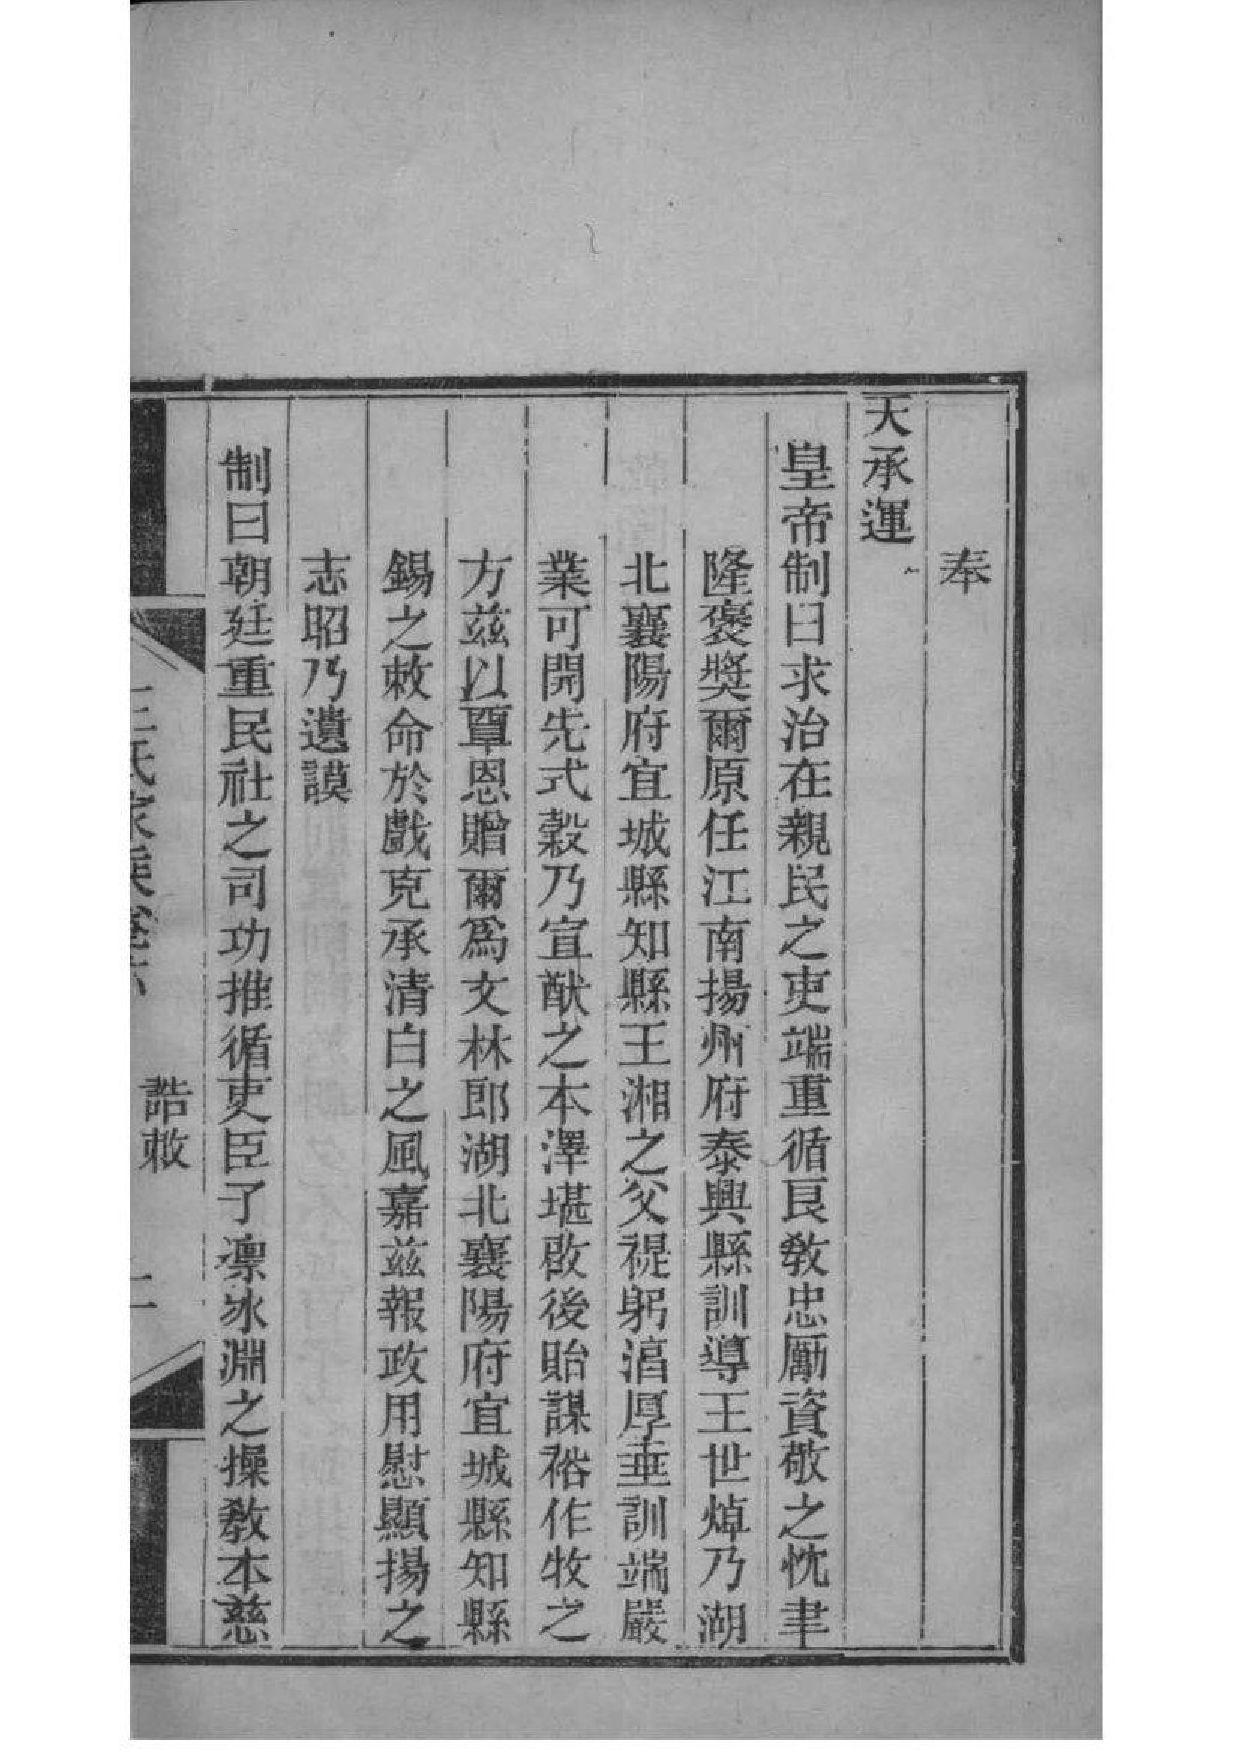 奉
天承運
皇帝制曰求治在親民之吏端重循良敎忠勵資敬之忱聿
隆褒獎爾原任江南揚州府泰興縣訓導王世焯乃湖
北襄陽府宜城縣知縣王湘之父禔躬湻厚垂訓端嚴
業可開先式穀乃宣猷之本澤堪啟後貽謀裕作牧之
方兹以覃恩贈爾爲文林郎湖北襄陽府宜城縣知縣
錫之敕命於戲克承清白之風嘉兹報政用慰顯揚之
志昭乃遺謨
制曰朝廷重民社之司功推循吏臣子凛冰淵之操敎本慈
誥敕